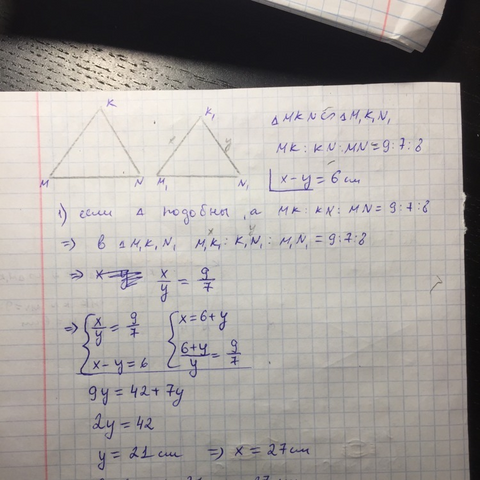 K
K₁
M
N
M₁
N₁
x
y
△MKN ∽ △M₁K₁N₁
MK : KN : MN = 9:7:8
x-y = 6 см
1) если △ подобны, а MK : KN : MN = 9:7:8
x y
=> в △M₁K₁N₁ M₁K₁ : K₁N₁ : M₁N₁ = 9:7:8
=> x/y = 9/7
=> { x/y = 9/7 { x=6+y
x-y=6 (6+y)/y = 9/7
9y = 42+7y
2y = 42
y = 21 см => x = 27 см